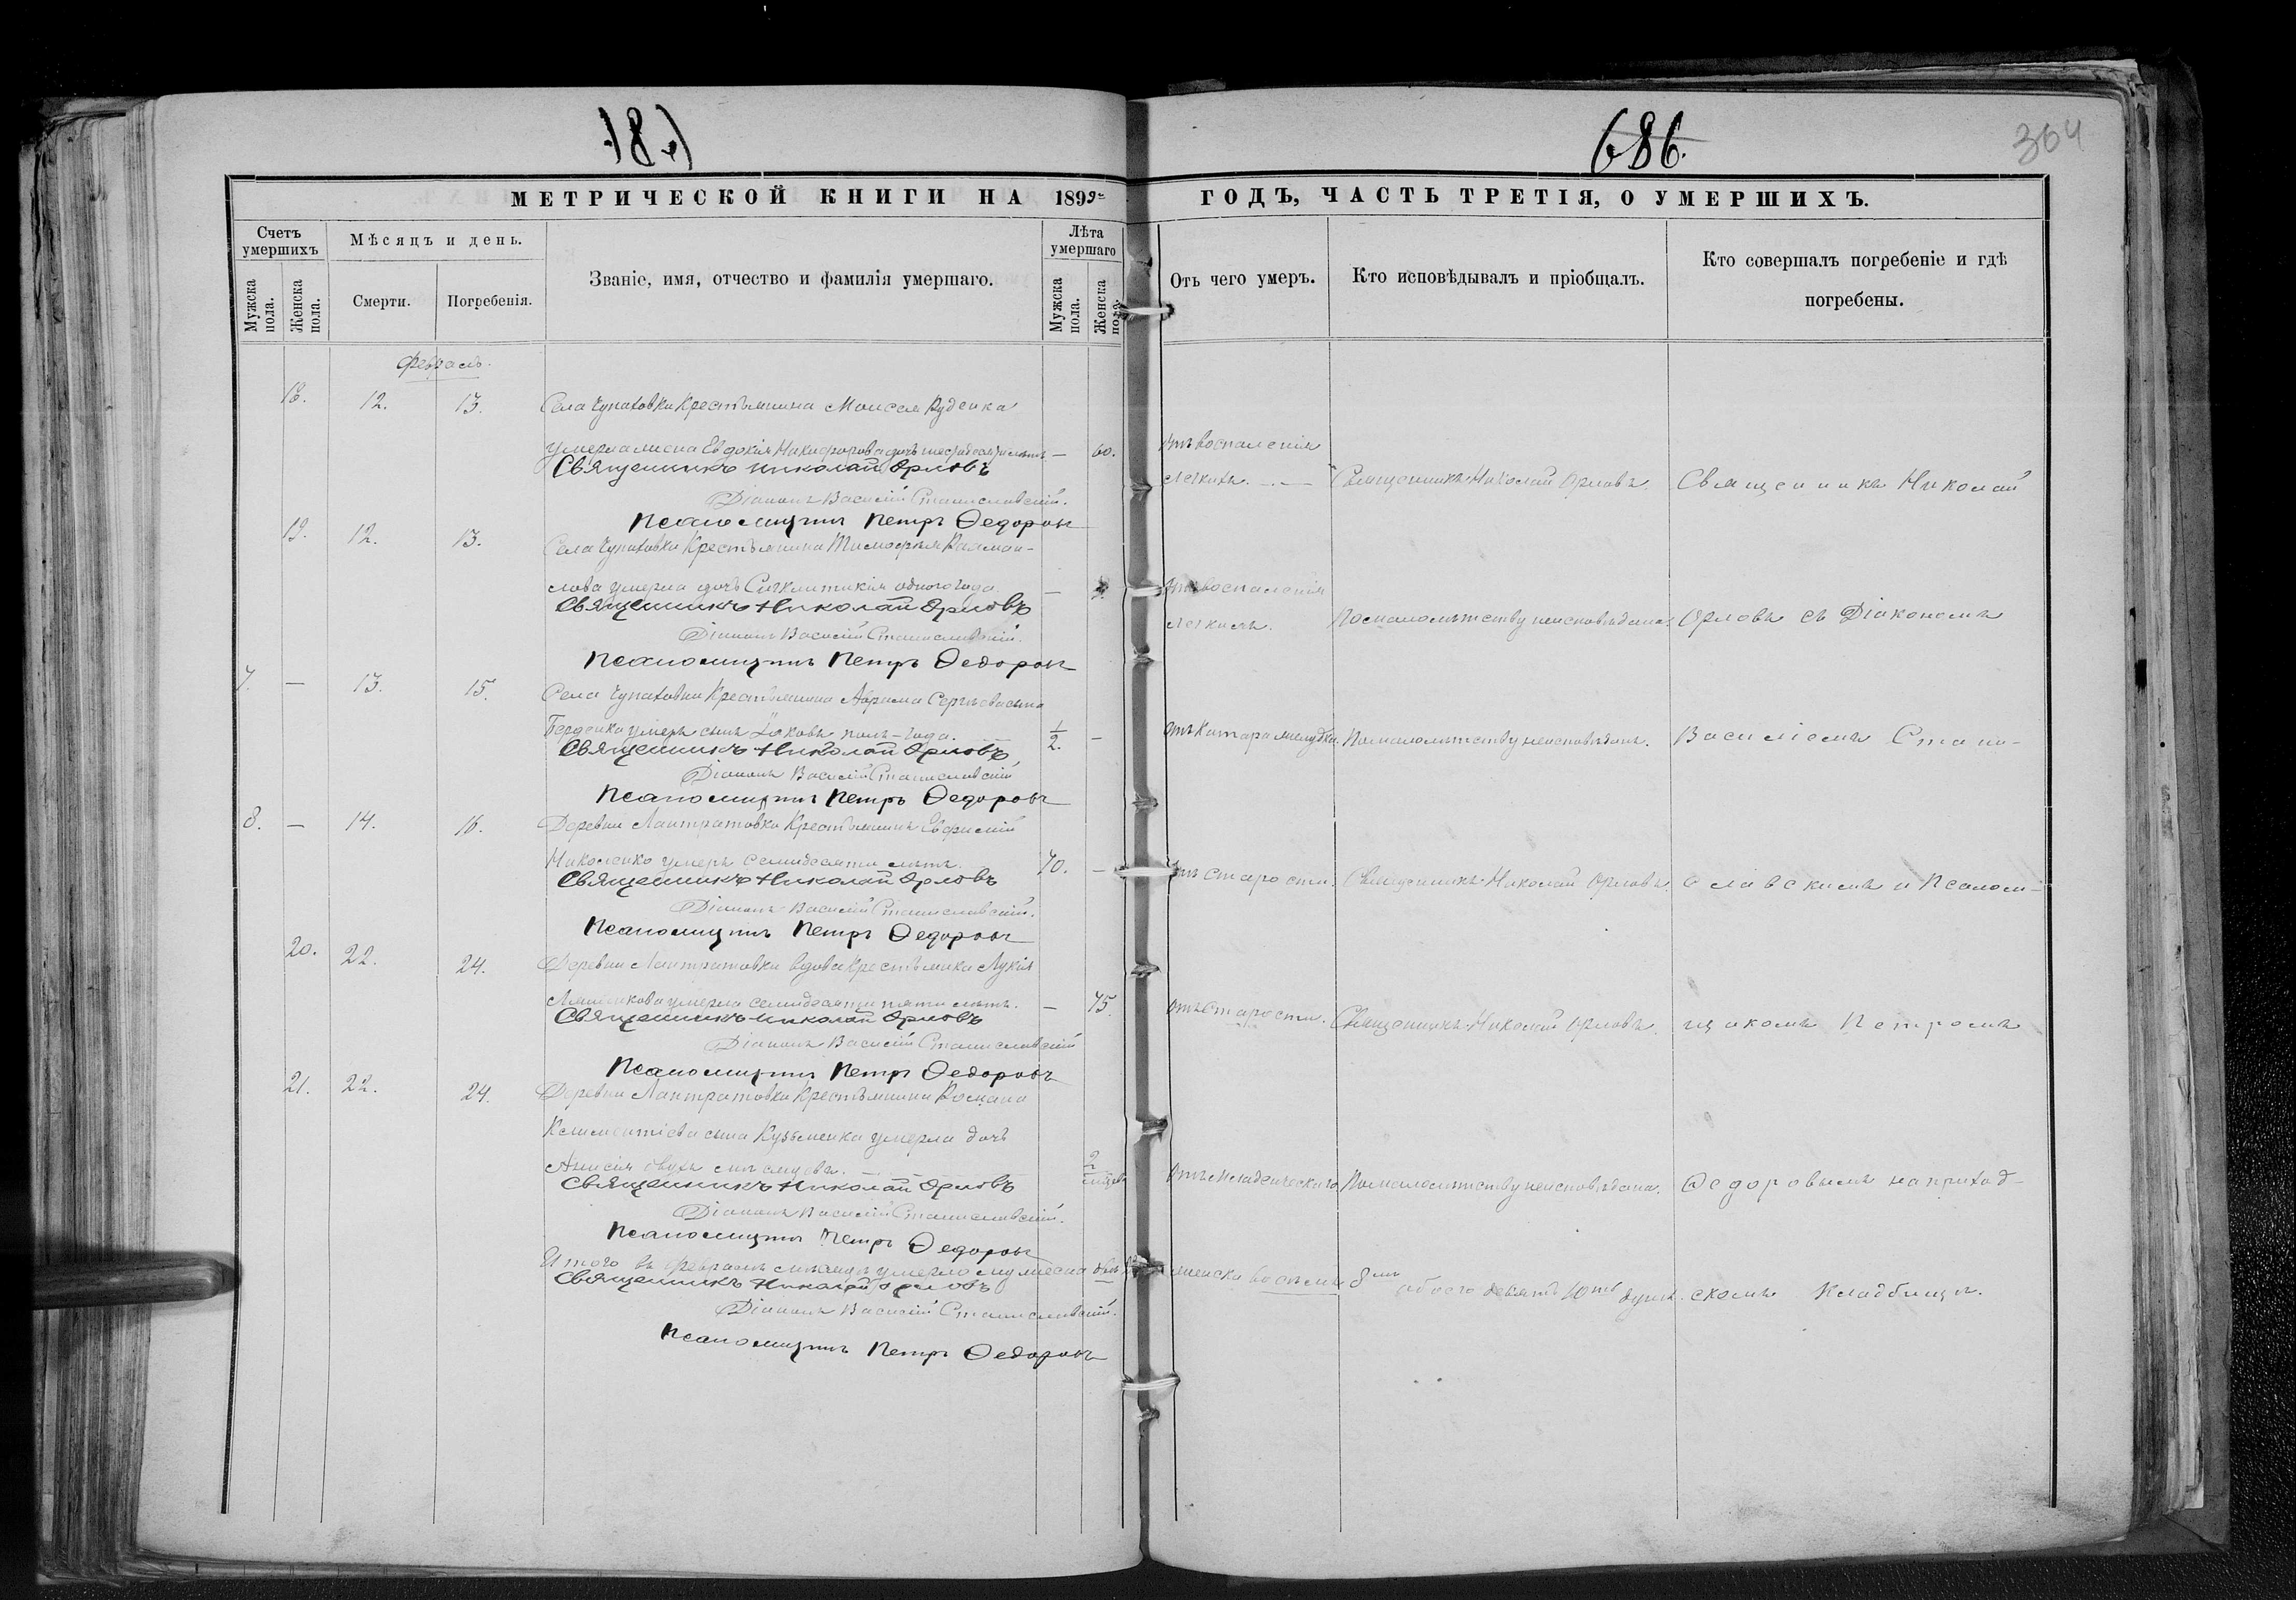 686.
364
МЕТРИЧЕСКОЙ КНИГИ НА 1899
ГОДЪ, ЧАСТЬ ТРЕТІЯ, О УМЕРШИХЪ.
Счетъ умершихъ
Мѣсяцъ и день.
Званіе, имя, отчество и фамилія умершаго.
Лѣта умершаго
Отъ чего умеръ.
Кто исповѣдывалъ и пріобщалъ.
Кто совершалъ погребеніе и гдѣ
погребены.
Мужска пола.
Женска пола.
Смерти.
Погребенія.
Мужска пола.
Женска пола.
Февраль.
18. 12. 13. Села Чупаховки Крестьянина Моисея Руденка
умерла жена Евдокія Никифорова дочь шестидесяти лѣтъ — 60. Отъ воспаленія
легкихъ. Священникъ Николай Орловъ. Священникъ Николай
Священникъ Николай Орловъ
Діаконъ Василій Станиславскій.
Псаломщикъ Петръ Ѳедоровъ
19. 12. 13. Села Чупаховки Крестьянина Тимоѳея
умерла дочь Синклитикія одного года — 1. Отъ воспаленія
легкихъ. По малолѣтству неисповѣдана. Орловъ съ Діакономъ
Священникъ Николай Орловъ
Діаконъ Василій Станиславскій.
Псаломщикъ Петръ Ѳедоровъ
7. — 13. 15. Села Чупаховки Крестьянина Абрама Сергѣева сына
умеръ сынъ Іаковъ полъ-года. 1/2. — Отъ катара желудка. По малолѣтству неисповѣданъ. Василіемъ Стани-
Священникъ Николай Орловъ
Діаконъ Василій Станиславскій
Псаломщикъ Петръ Ѳедоровъ
8. — 14. 16. Деревни Лантратовки Крестьянинъ Евфимій
Николенко умеръ семидесяти лѣтъ. 70. — Отъ старости. Священникъ Николай Орловъ. славскимъ и Псалом-
Священникъ Николай Орловъ
Діаконъ Василій Станиславскій.
Псаломщикъ Петръ Ѳедоровъ
20. 22. 24. Деревни Лантратовки вдова Крестьянка Лукія
умерла семидесяти пяти лѣтъ. — 75. Отъ старости. Священникъ Николай Орловъ щикомъ Петромъ
Священникъ Николай Орловъ
Діаконъ Василій Станиславскій
Псаломщикъ Петръ Ѳедоровъ
21. 22. 24. Деревни Лантратовки Крестьянина Романа
Климентіева сына Кузьменка умерла дочь
Анисія двухъ мѣсяцевъ. 2 Отъ младенческаго По малолѣтству неисповѣдана. Ѳедоровымъ на приход-
Священникъ Николай Орловъ
Діаконъ Василій Станиславскій.
Псаломщикъ Петръ Ѳедоровъ
Итого въ Февралѣ мѣсяцѣ умерло мужеска женска восемь 8 обоего 10 душъ. скомъ Кладбищѣ.
Священникъ Николай Орловъ
Діаконъ Василій Станиславскій.
Псаломщикъ Петръ Ѳедоровъ